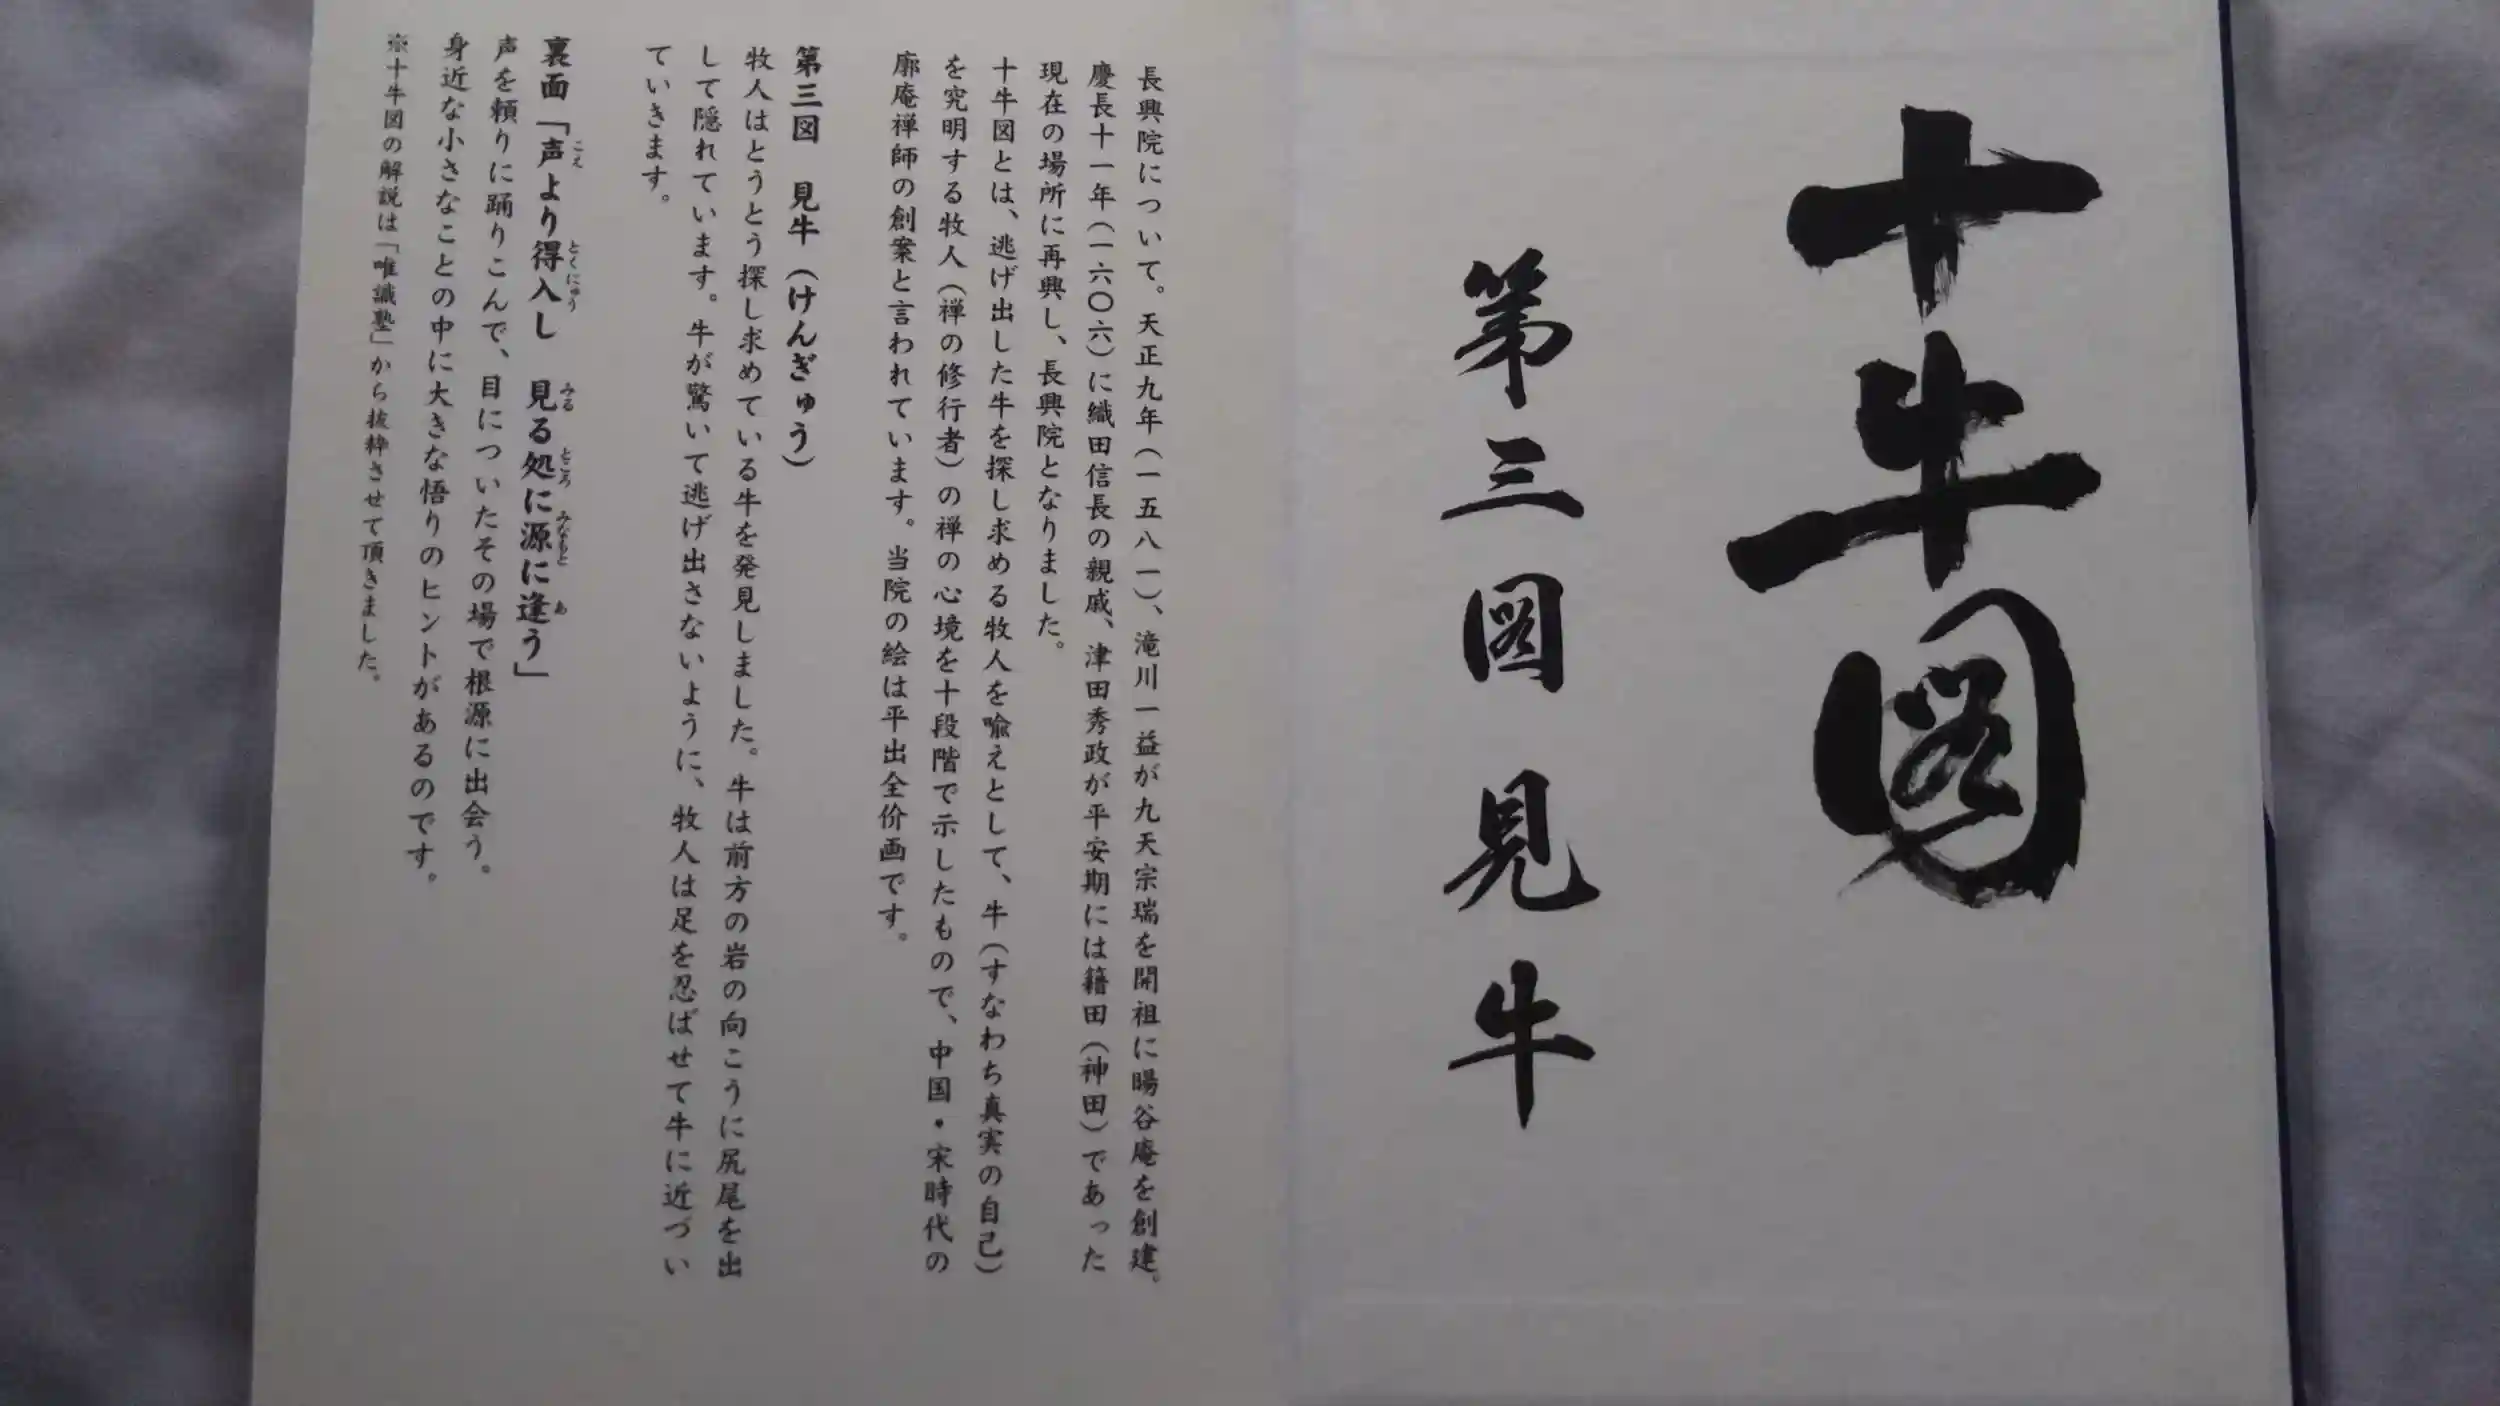 十牛図
第三図 見牛
長興院について。天正九年(一五八一)、滝川一益が九天宗瑞を開祖に暘谷庵を創建。
慶長十一年(一六〇六)に織田信長の親戚、津田秀政が平安期には籍田(神田)であった
現在の場所に再興し、長興院となりました。
十牛図とは、逃げ出した牛を探し求める牧人を喩えとして、牛(すなわち真実の自己)
を究明する牧人(禅の修行者)の禅の心境を十段階で示したもので、中国・宋時代の
廓庵禅師の創案と言われています。当院の絵は平出全价画です。
第三図 見牛(けんぎゅう)
牧人はとうとう探し求めている牛を発見しました。牛は前方の岩の向こうに尻尾を出
して隠れています。牛が驚いて逃げ出さないように、牧人は足を忍ばせて牛に近づい
ていきます。
裏面「声より得入し 見る処に源に逢う」
こえ とくにゅう みる ところ みなもと あ
声を頼りに踊りこんで、目についたその場で根源に出会う。
身近な小さなことの中に大きな悟りのヒントがあるのです。
※十牛図の解説は「唯識塾」から抜粋させて頂きました。